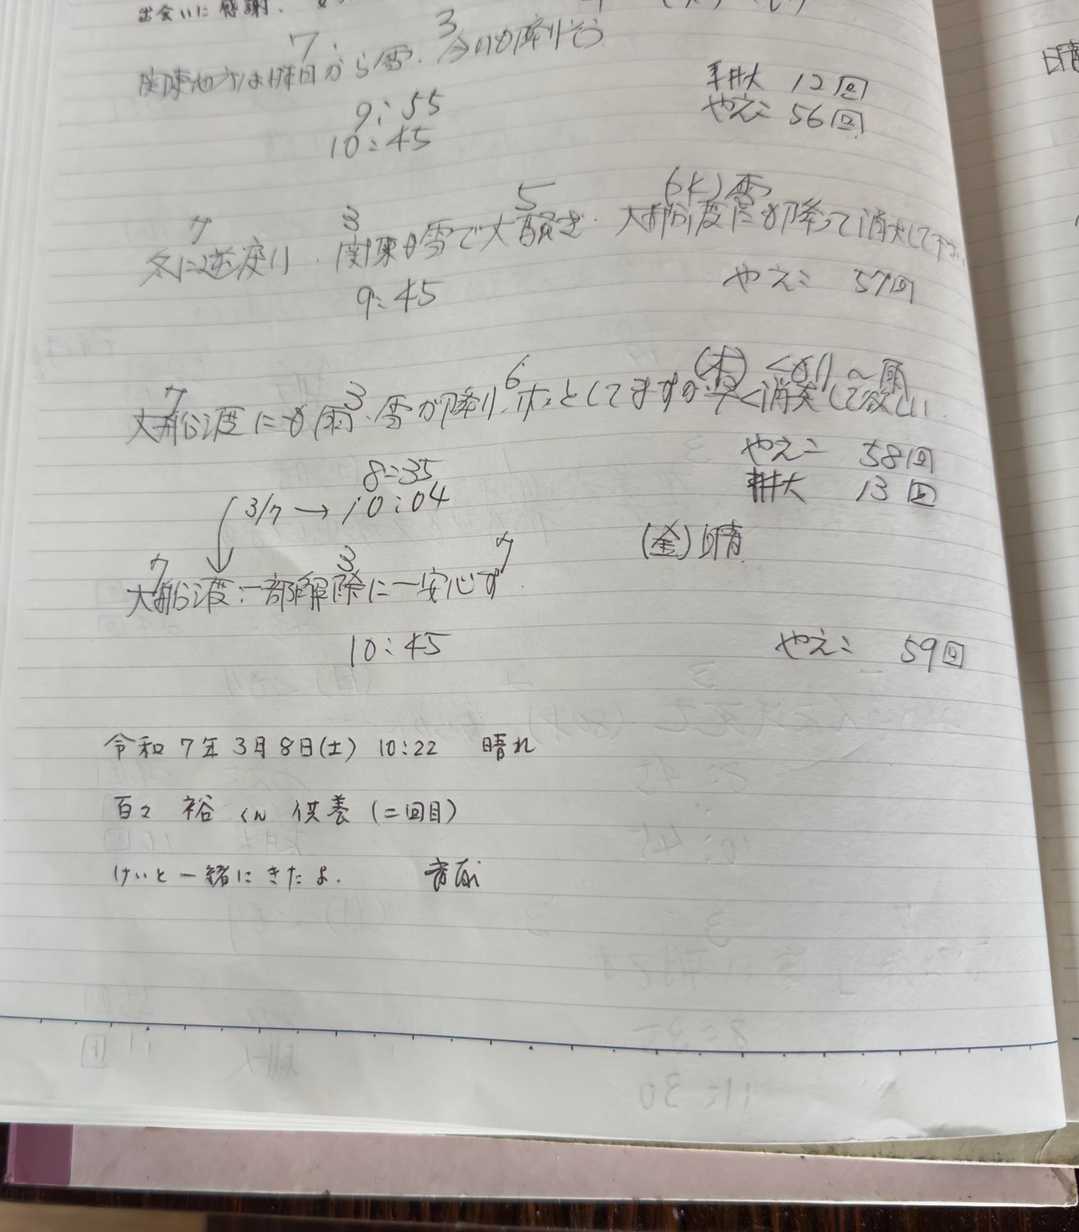 出会いに感謝.
7 3
関東地方は昨日から雪. 今日も降りそう
9:55 耕大 12回
10:45 やえこ 56回
7 3 5 (水) 雪
冬に逆戻り. 関東も雪で大騒ぎ. 大船渡にも降って消火して下さい
9:45 やえこ 57回
7 3 6 (木) くもり〜雨
大船渡にも雨.雪が降り.ホッとしてますが早く消炎して欲しい
8:35 やえこ 58回
3/7 → 10:04 耕大 13回
7 3 7 (金) 晴
大船渡:一部解除に一安心す.
10:45 やえこ 59回
令和 7年 3月 8日(土) 10:22 晴れ
百々 裕 くん 供養 (二回目)
けいと一緒にきたよ.